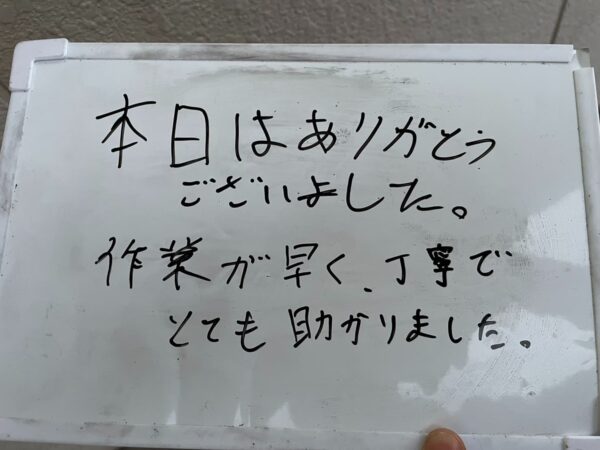 本日はありがとう
ございました。
作業が早く、丁寧で
とても助かりました。